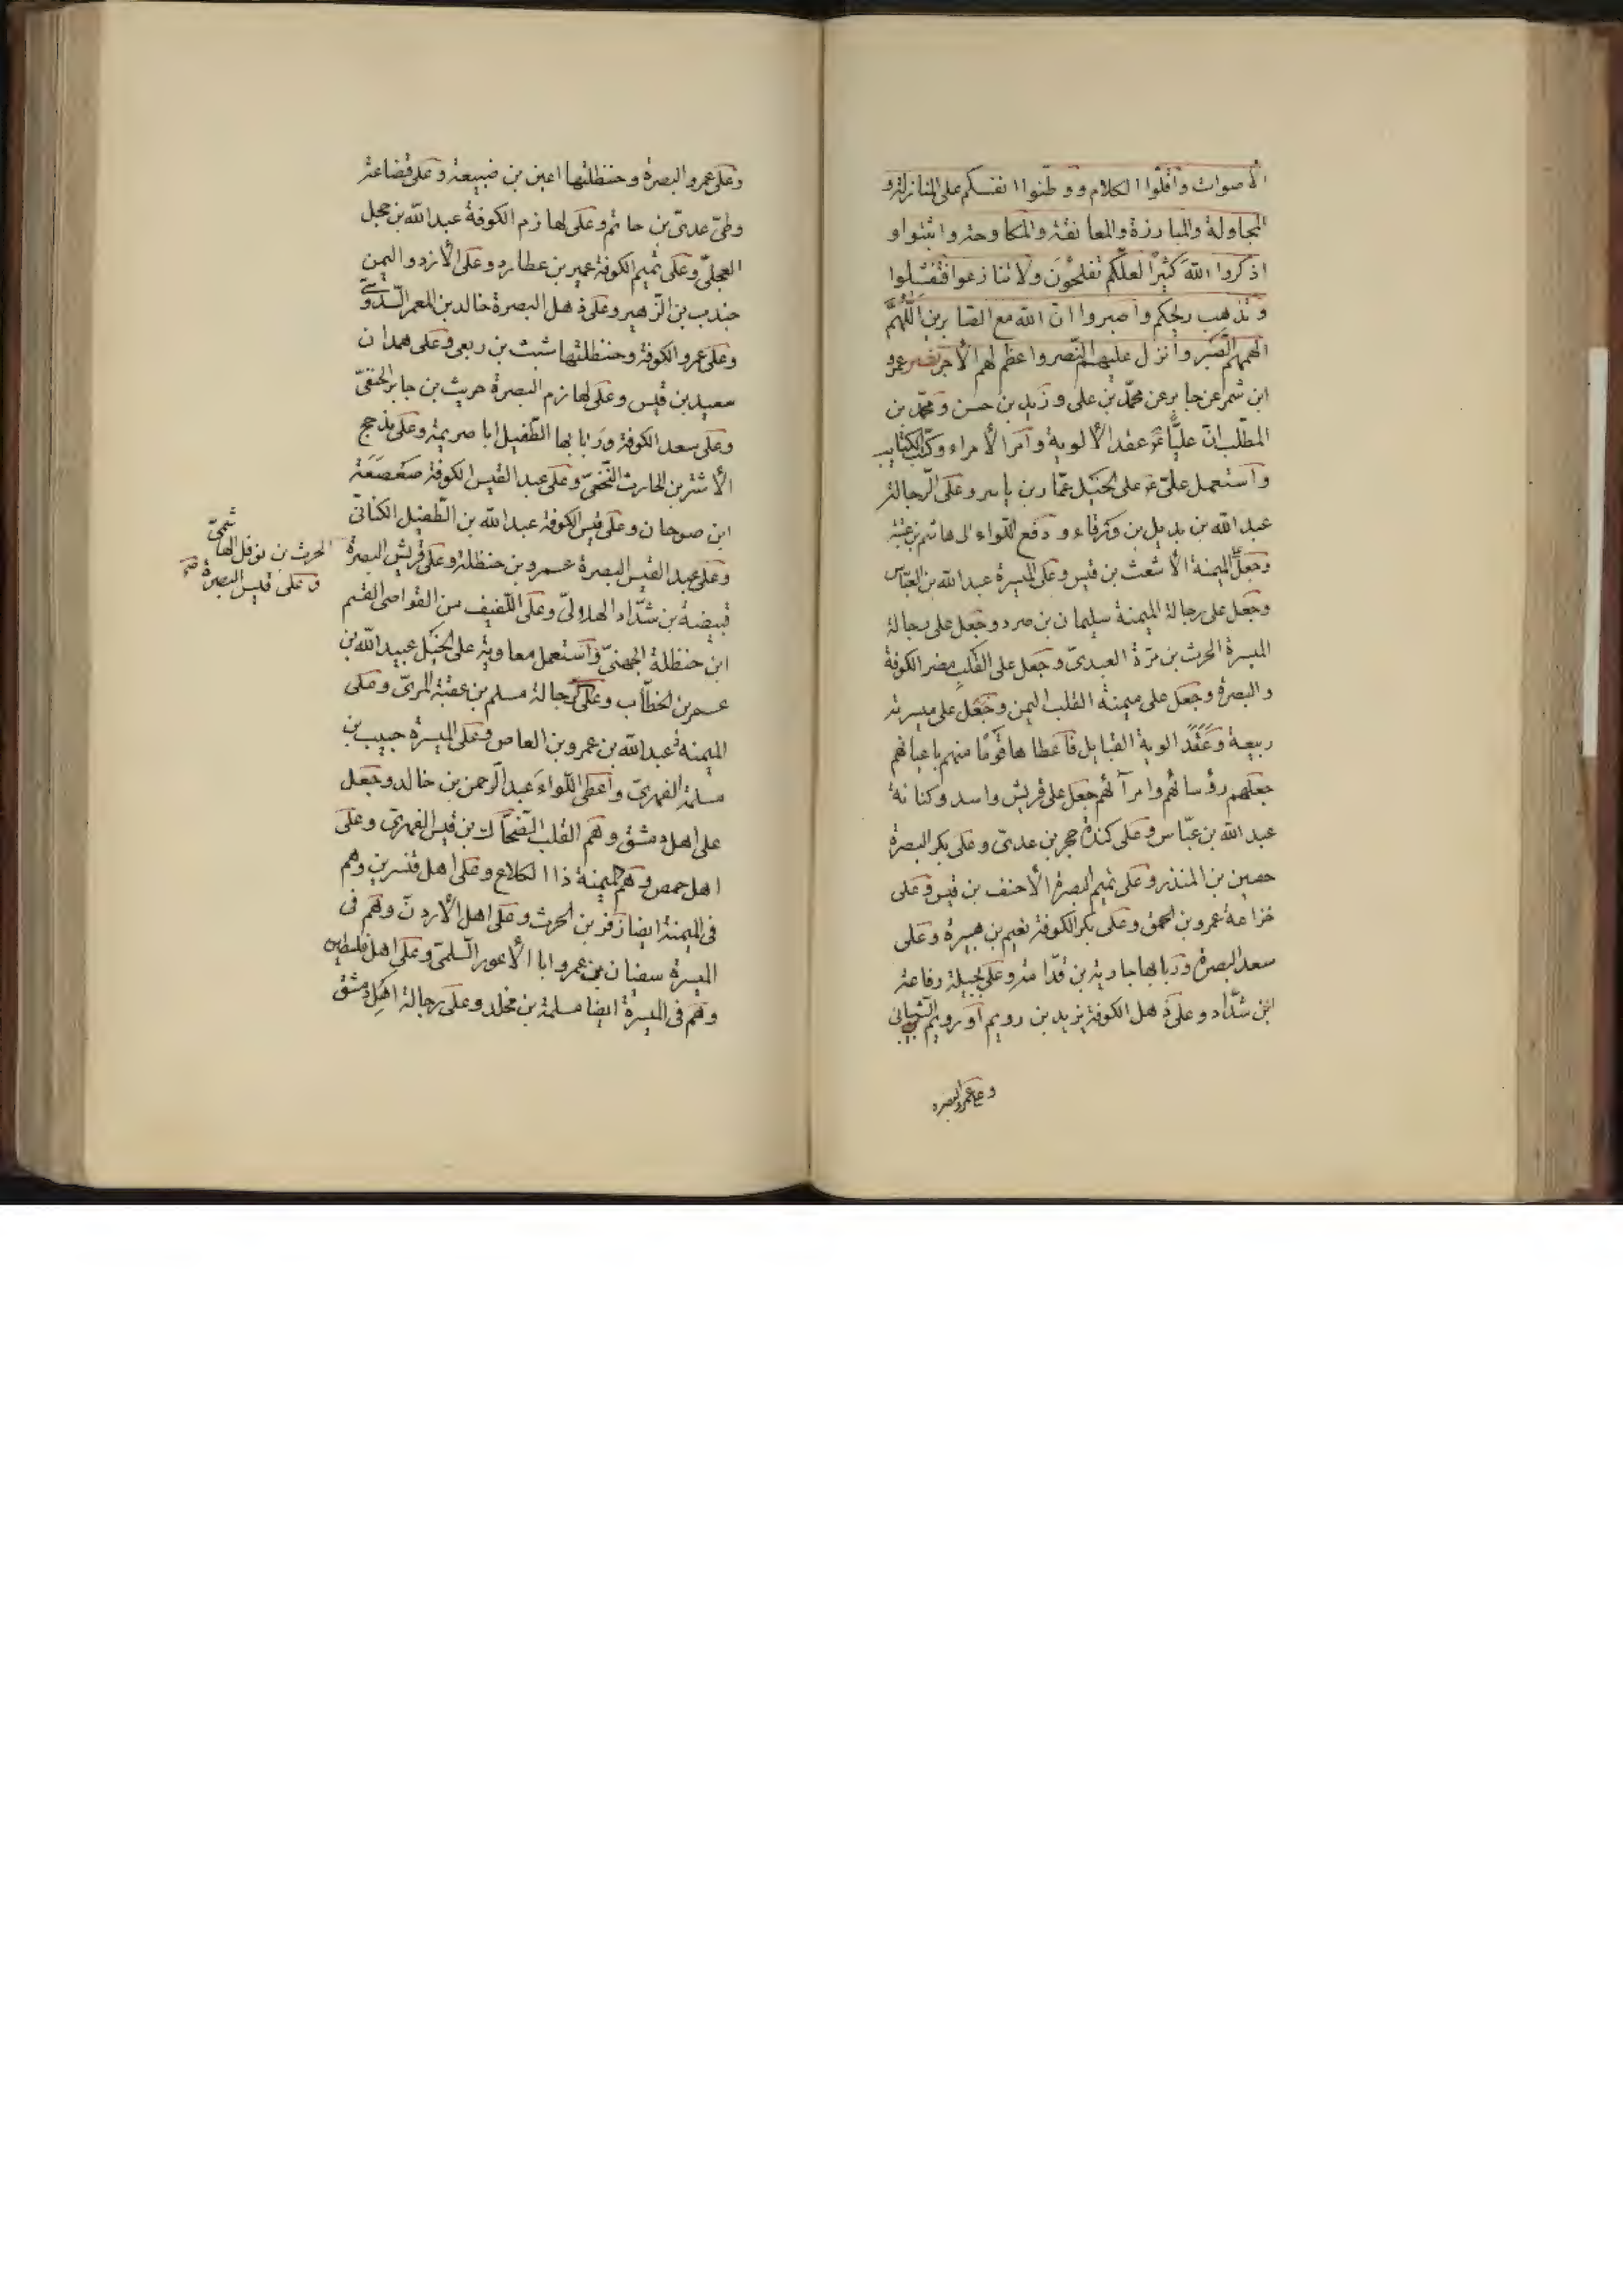 الأصوات وأقلّوا الكلام ووطنوا انفسكم على المنازلة و
المجاولة والمبارزة والمعانقة والمكاوحة واثبتوا و
اذكروا اللّه كثيرًا لعلّكم تفلحون ولا تنازعوا فتفشلوا
وتذهب ريحكم واصبروا انّ اللّه مع الصّابرين اللّهُمَّ
الهمهم الصّبر وانزل عليهم النّصر واعظم لهم الأجر نصر عمرو
ابن شمر عن جابر عن محمّد بن على وزيد بن حسن ومحمّد بن
المطّلب انّ عليًّا عَ عقد الألوية وامّر الأمراء وكتّب الكتايب
واستعمل علىّ عَ على الخيل عمّار بن ياسر وعلى الرّجالة
عبد اللّه بن بديل بن ورقاء ودفع اللّواء الى هاشم بن عتبة
وجعل الميمنة الأشعث بن قيس وعلى الميسرة عبد اللّه بن العبّاس
وجعل على رجالة الميمنة سليمان بن صرد وجعل على رجالة
الميسرة الحرث بن مرّة العبدىّ وجعل على القلب مضر الكوفة
والبصرة وجعل على ميمنة القلب اليمن وجعل على ميسرته
ربيعة وعقد الوية القبايل فاعطاها قومًا منهم باعيانهم
جعلهم رؤسائهم وامرآئهم جعل على قريش واسد وكنانة
عبد اللّه بن عبّاس وعلى كندة حجر بن عدىّ وعلى بكر البصرة
حصين بن المنذر وعلى تميم البصرة الأحنف بن قيس وعلى
خزاعة عمرو بن الحمق وعلى بكر الكوفة نعيم بن هبيرة وعلى
سعد البصرة وربابها جارية بن قدّامة وعلى بجيلة رفاعة
ابن شدّاد وعلى ذهل الكوفة يزيد بن رويم او رويم الشّيبانى
وعلى عمرو البصره
وعلى عمرو البصرة وحنظلتها اعين بن ضبيعة وعلى قضاعة
وطىّ عدىّ بن حاتم وعلى لهازم الكوفة عبد اللّه بن حجل
العجلىّ وعلى تميم الكوفة عمير بن عطارد وعلى الأزد واليمن
جندب بن الزّهير وعلى ذهل البصرة خالد بن المعمر السّدوسىّ
وعلى عمرو الكوفة وحنظلتها شبث بن ربعى وعلى همدان
سعيد بن قيس وعلى لهازم البصرة حريث بن جابر الحنفىّ
وعلى سعد الكوفة وربابها الطّفيل ابا صريمة وعلى مذحج
الأشتر بن الحارث النّخعىّ وعلى عبد القيس الكوفة صعصعة
ابن صوحان وعلى قيس الكوفة عبد اللّه بن الطّفيل الكنانىّ
وعلى عبد القيس البصرة عمرو بن حنظلة وعلى قريش البصرة
الحرث بن نوفل الهاشمىّ
وعلى قيس البصرة صح
قبيضة بن شدّاد الهلالىّ وعلى اللّفيف من القواصى القسم
ابن حنظلة الجهنىّ واستعمل معاوية على الخيل عبيد اللّه بن
عمر بن الخطّاب وعلى الرّجالة مسلم بن عقبة المرىّ وعلى
الميمنة عبد اللّه بن عمرو بن العاص وعلى الميسرة حبيب بن
مسلمة الفهرىّ واعطى اللّواء عبد الرّحمن بن خالد وجعل
على اهل دمشق وهم القلب الضّحّاك بن قيس الفهرىّ وعلى
اهل حمص وهم الميمنة ذا الكلاع وعلى اهل قنسرين وهم
فى الميمنة ايضا زفر بن الحرث وعلى اهل الأردن وهم فى
الميسرة سفيان بن عمرو ابا الأعور السّلمىّ وعلى اهل فلسطين
وهم فى الميسرة ايضا مسلمة بن مخلد وعلى رجالة اهل دمشق